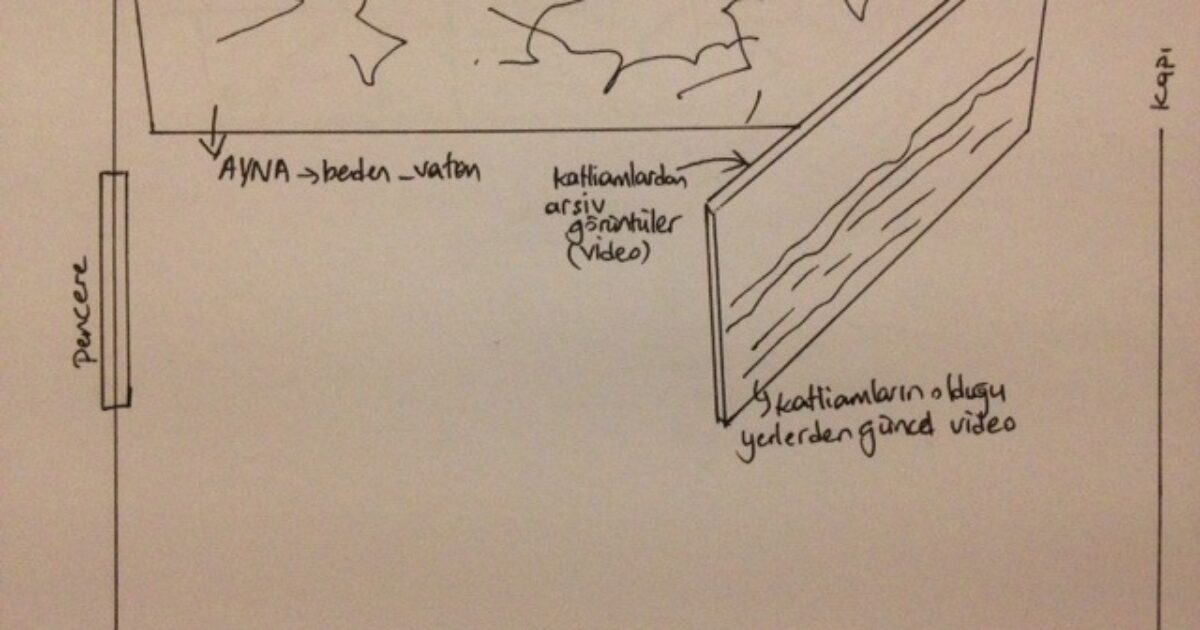 kapı
AYNA → beden _ vatan
katliamlardan
arsiv
görüntüler
(video)
pencere
katliamların olduğu
yerlerden güncel video